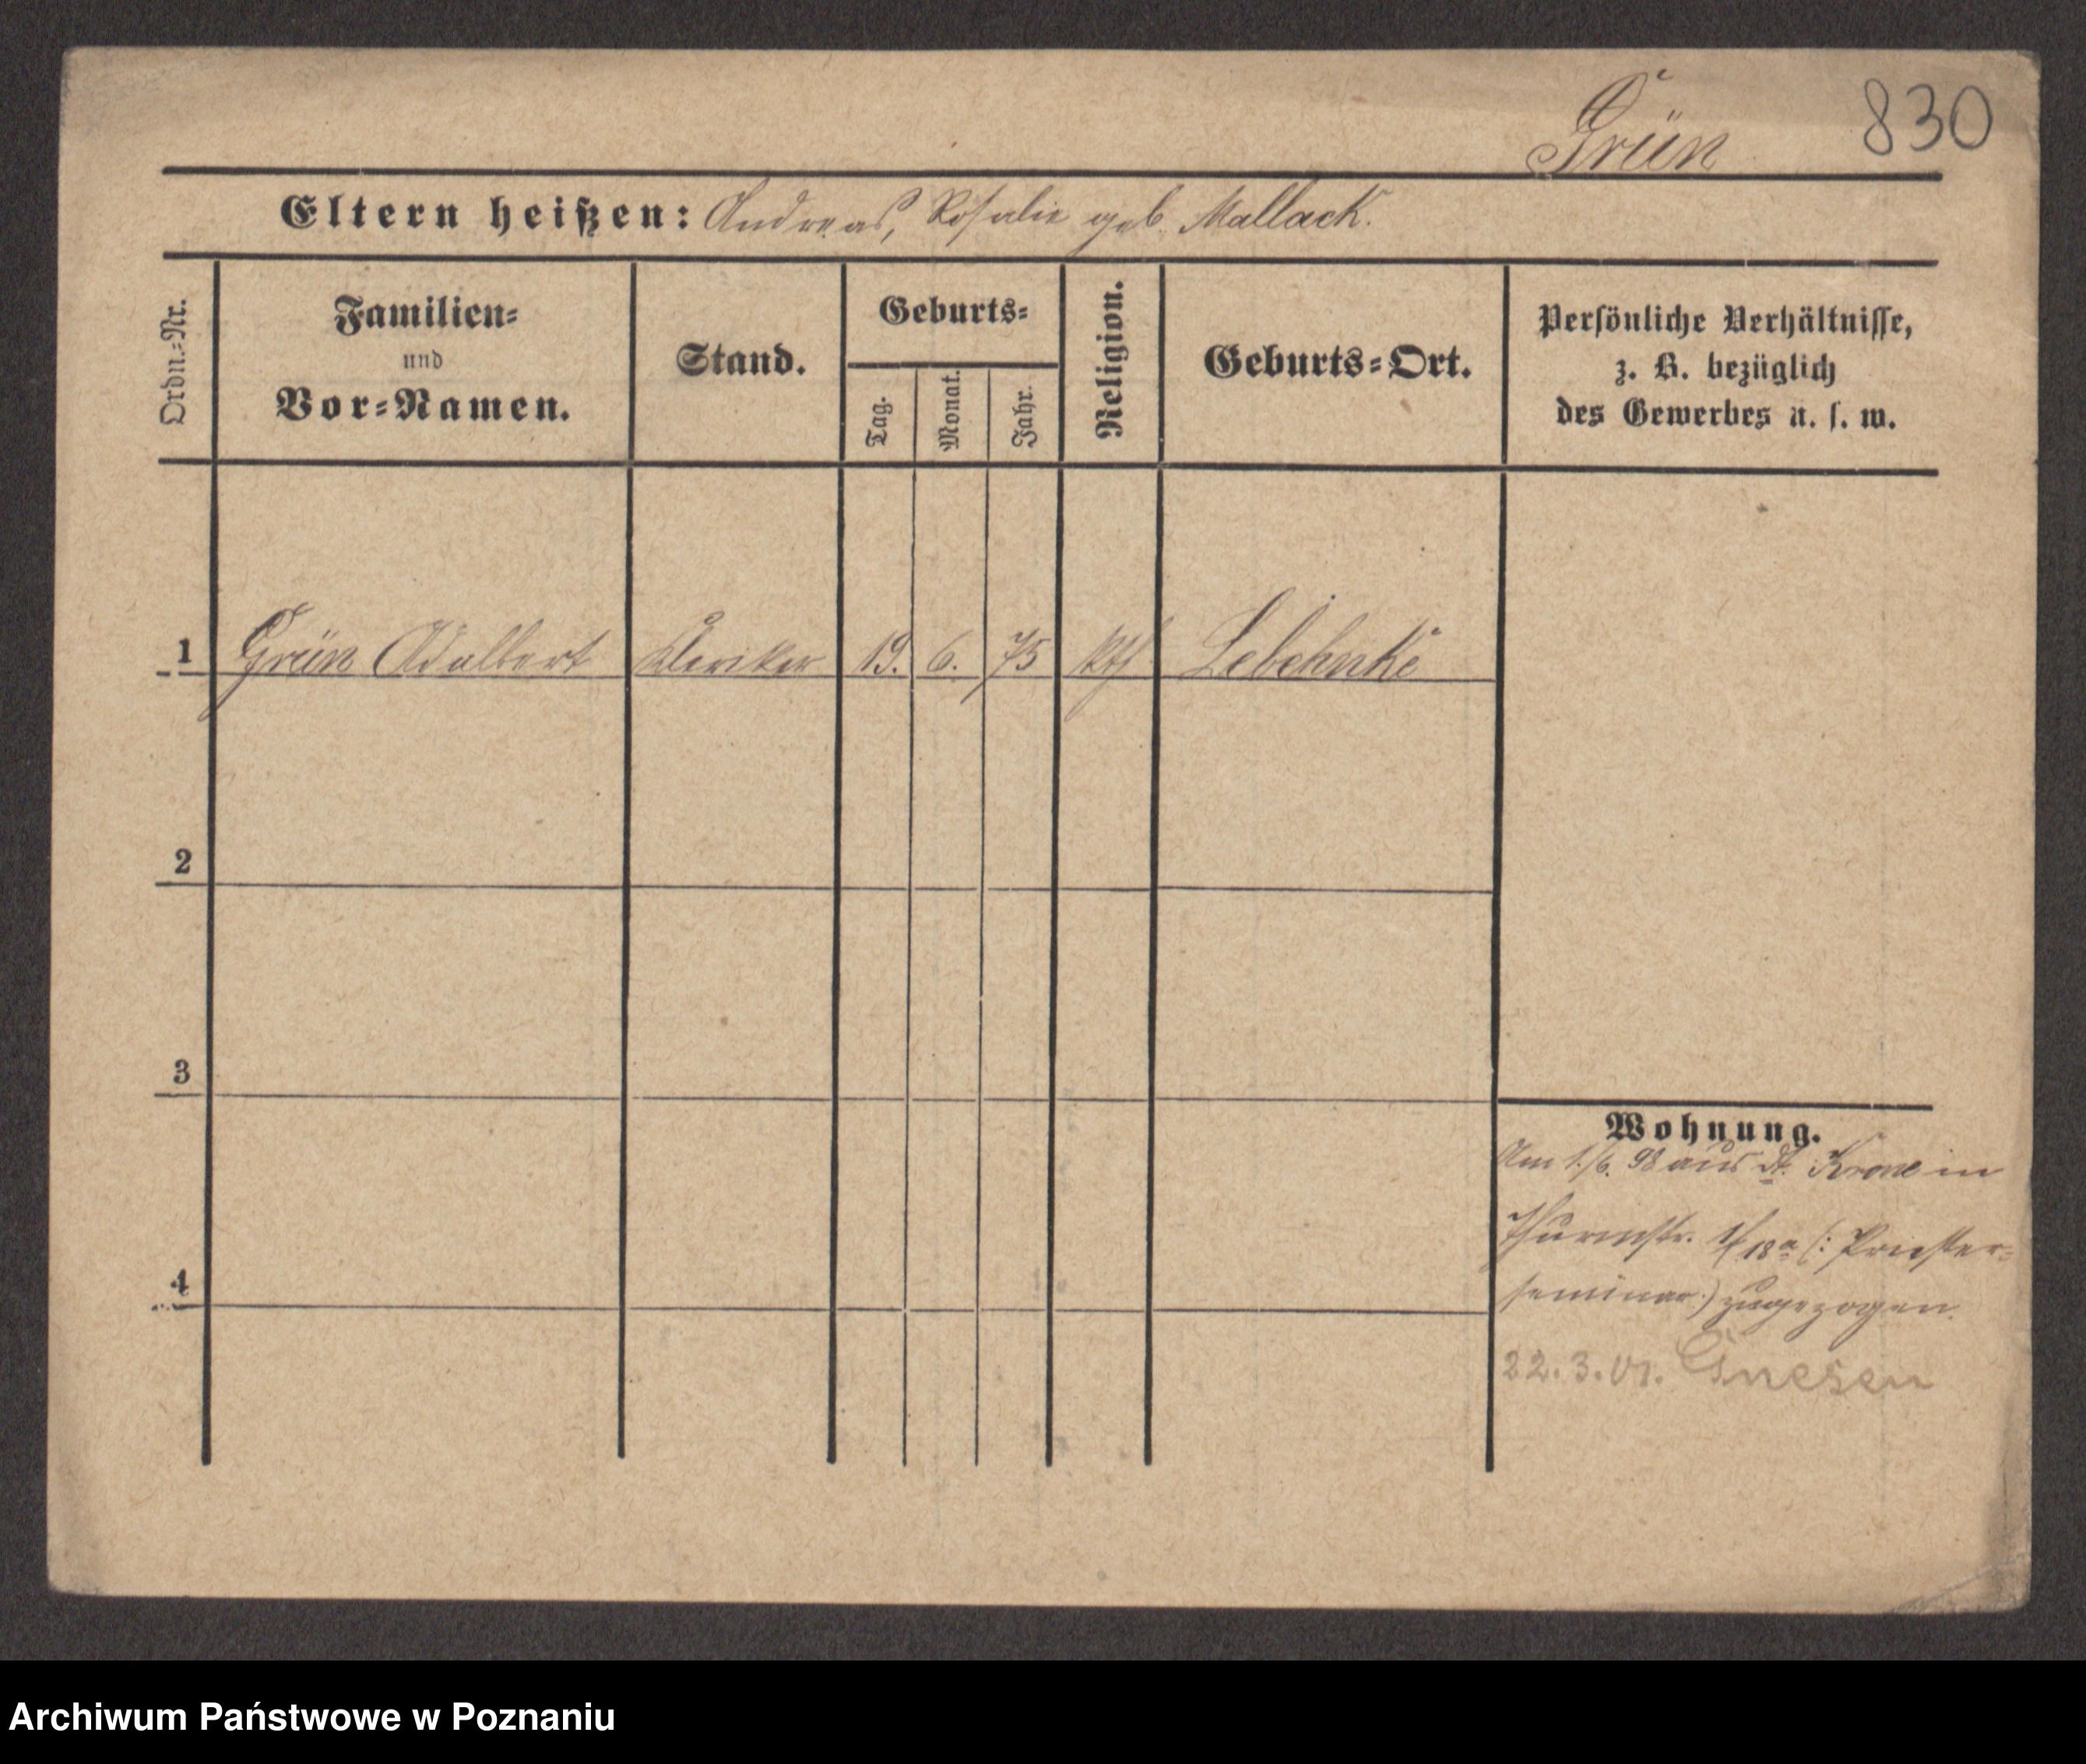 Grün 830
Eltern heißen: Andreas, Rosalie geb. Mallack.
Ordn.-Nr.
Familien-
und
Vor-Namen.
Stand.
Geburts-
Tag.
Monat.
Jahr.
Religion.
Geburts-Ort.
Persönliche Verhältnisse,
z. B. bezüglich
des Gewerbes u. s. w.
1 Grün Adalbert Kleriker 19. 6. 75 kth Lebehnke
2
3
4
Wohnung.
Am 1./6. 98 aus Dt. Krone in
Thurmstr. 18a (: Priester-
seminar :) zugezogen.
22. 3. 01. Gnesen
Archiwum Państwowe w Poznaniu